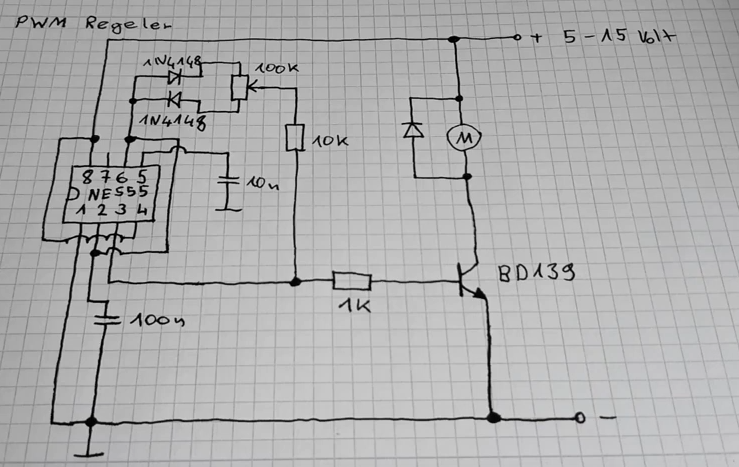 PWM Regeler
+ 5-15 Volt
1N4148
100K
1N4148
10K
8 7 6 5
NE555
1 2 3 4
10n
BD139
1K
100n
M
-